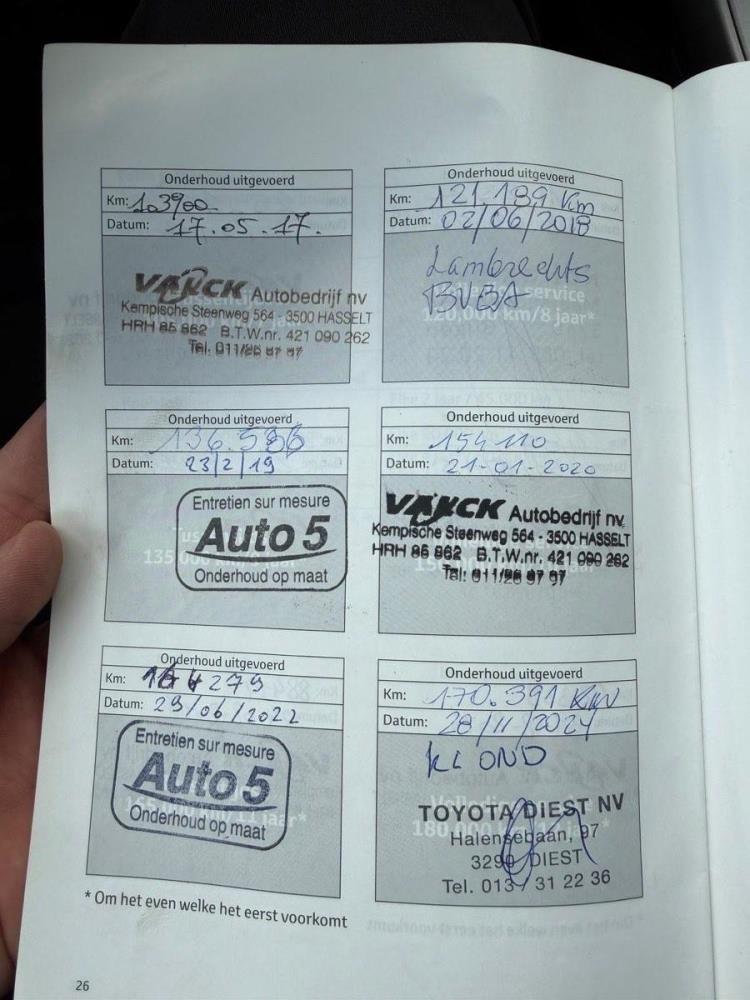 Onderhoud uitgevoerd
Km: 103900
Datum: 17.05.17.
VANCK Autobedrijf nv
Kempische Steenweg 564 - 3500 HASSELT
HRH 86 862 B.T.W.nr. 421 090 262
Tel. 011/26 97 97
Onderhoud uitgevoerd
Km: 121.189 Km
Datum: 02/06/2018
Lambrechts
BVBA
Volledige service
120,000 km/8 jaar*
Onderhoud uitgevoerd
Km: 136.536
Datum: 23/2/19
Entretien sur mesure
Auto 5
Onderhoud op maat
Onderhoud uitgevoerd
Km: 154110
Datum: 21-01-2020
VANCK Autobedrijf nv
Kempische Steenweg 564 - 3500 HASSELT
HRH 86 862 B.T.W.nr. 421 090 262
Tel: 011/26 97 97
Onderhoud uitgevoerd
Km: 164279
Datum: 29/06/2022
Entretien sur mesure
Auto 5
Onderhoud op maat
Onderhoud uitgevoerd
Km: 170.391 KM
Datum: 28/11/2024
KL OND
TOYOTA DIEST NV
Halensebaan, 97
3290 DIEST
Tel. 013 / 31 22 36
* Om het even welke het eerst voorkomt
26